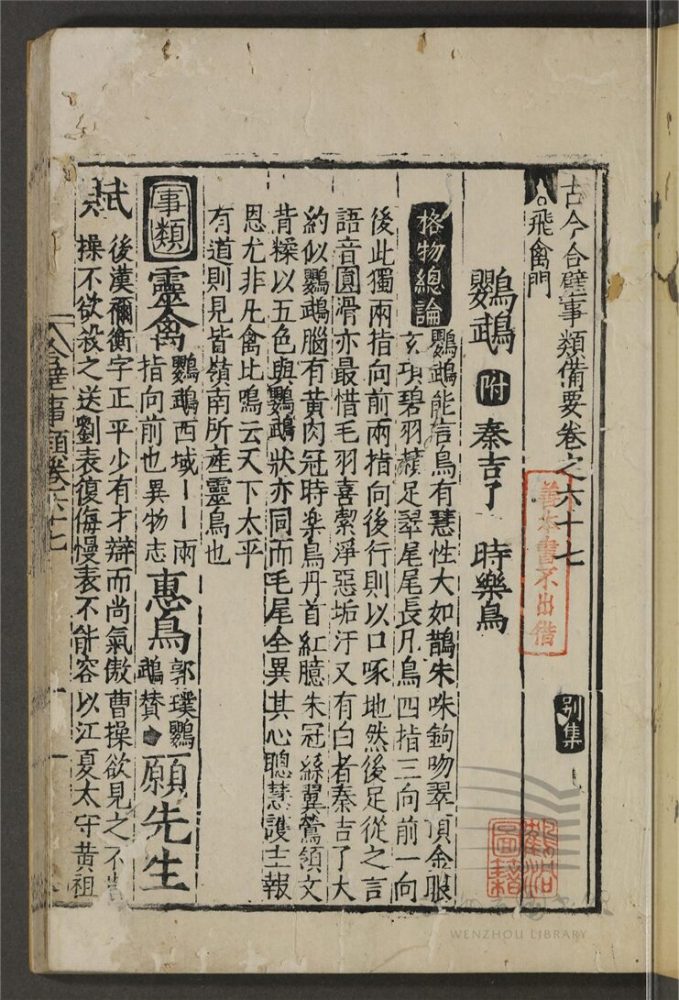 古今合璧事類備要卷之六十七
別集
善本書不出借
飛禽門
鸚鵡 附 秦吉了 時樂鳥
格物總論 鸚鵡能言鳥有慧性大如鵲朱咮鉤吻翠頂金眼
玄項碧羽 足翠尾尾長凡鳥四指三向前一向
後此獨兩指向前兩指向後行則以口啄地然後足從之言
語音圓滑亦最惜毛羽喜繫淨惡垢汙又有白者秦吉了大
約似鸚鵡腦有黃肉冠時楽鳥丹首紅臆朱冠綠翼鶯領文
背糅以五色與鸚鵡狀亦同而毛尾全異其心聰慧護主報
恩尤非凡禽比鳴云天下太平
有道則見皆嶺南所產靈鳥也
事類 靈禽 鸚鵡西域丨丨兩
指向前也異物志 惠鳥 郭璞鸚
鵡賛 願先生
後漢禰衡字正平少有才辯而尚氣傲曹操欲見之不肯
操不欲殺之送劉表復侮慢表不能容以江夏太守黃祖
合璧事類卷六十七
WENZHOU LIBRARY